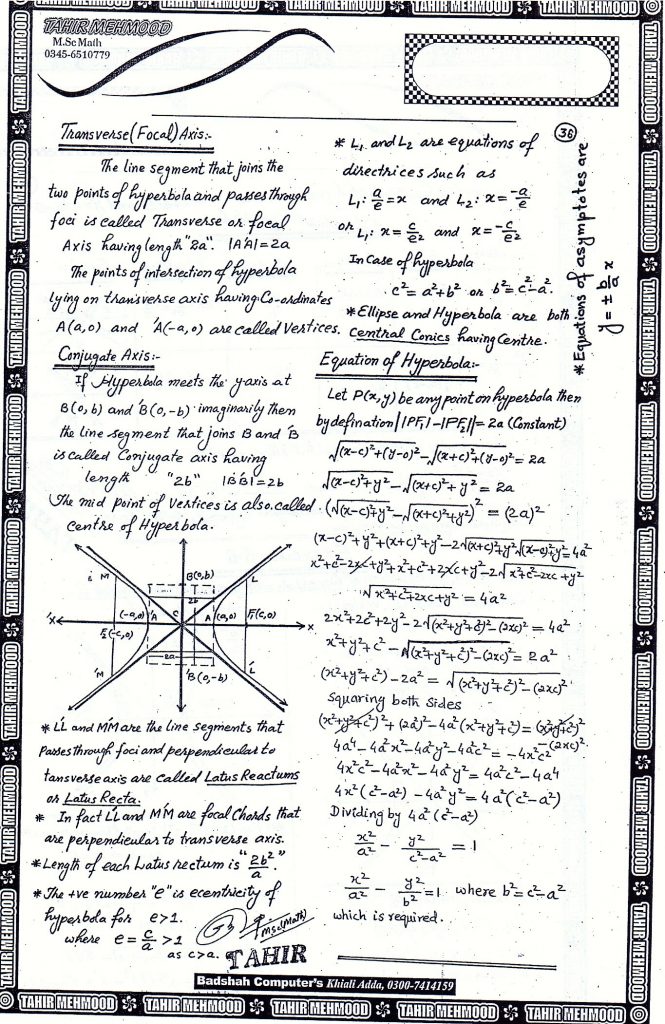 TAHIR MEHMOOD
M.Sc Math
0345-6510779
36
Transverse (Focal) Axis:-
The line segment that joins the
two points of hyperbola and passes through
foci is called Transverse or focal
Axis having length "2a". |A'A| = 2a
The points of intersection of hyperbola
lying on transverse axis having Co-ordinates
A(a,o) and 'A(-a,o) are called Vertices.
Conjugate Axis:-
If Hyperbola meets the y-axis at
B(0,b) and 'B(0,-b) imaginarily then
the line segment that joins B and 'B
is called Conjugate axis having
length "2b" |B'B| = 2b
The mid point of Vertices is also called
centre of Hyperbola.
M
B(0,b)
L
2b
(-a,o) 'A C A (a,o) F₁(c,o)
'x x
F₂(-c,o)
2a
'M 'B(0,-b) 'L
* LL' and MM' are the line segments that
Passes through foci and perpendicular to
tansverse axis are called Latus Reactums
or Latus Recta.
* In fact LL' and MM' are focal Chords that
are perpendicular to transverse axis.
* Length of each Latus rectum is "2b²/a"
* The +ve number "e" is ecentricity of
hyperbola for e>1.
where e = c/a > 1
as c>a.
MSc(Math)
TAHIR
* L₁ and L₂ are equations of
directrices such as
L₁: a/e = x and L₂: x = -a/e
or L₁: x = c/e² and x = -c/e²
In Case of hyperbola
c² = a²+b² or b² = c²-a².
* Ellipse and Hyperbola are both
Central Conics having Centre.
* Equations of asymptotes are
y = ± b/a x
Equation of Hyperbola:-
Let P(x,y) be any point on hyperbola then
by defination ||PF₁|-|PF₂|| = 2a (Constant)
√(x-c)²+(y-o)² - √(x+c)²+(y-o)² = 2a
√(x-c)²+y² - √(x+c)²+y² = 2a
(√(x-c)²+y² - √(x+c)²+y²)² = (2a)²
(x-c)²+y²+(x+c)²+y²-2√(x+c)²+y² √(x-c)²+y² = 4a²
x²+c²-2xc+y²+x²+c²+2xc+y²-2√x²+c²-2xc+y²
√x²+c²+2xc+y² = 4a²
2x²+2c²+2y²-2√(x²+y²+c²)²-(2xc)² = 4a²
x²+y²+c²-√(x²+y²+c²)²-(2xc)² = 2a²
(x²+y²+c²)-2a² = √(x²+y²+c²)²-(2xc)²
Squaring both Sides
(x²+y²+c²)²+(2a²)²-4a²(x²+y²+c²) = (x²+y²+c²)²
-(2xc)²
4a⁴-4a²x²-4a²y²-4a²c² = -4x²c²
4x²c²-4a²x²-4a²y² = 4a²c²-4a⁴
4x²(c²-a²)-4a²y² = 4a²(c²-a²)
Dividing by 4a²(c²-a²)
x²/a² - y²/c²-a² = 1
x²/a² - y²/b² = 1 where b² = c²-a²
which is required.
Badshah Computer's Khiali Adda, 0300-7414159
TAHIR MEHMOOD TAHIR MEHMOOD TAHIR MEHMOOD TAHIR MEHMOOD TAHIR MEHMOOD